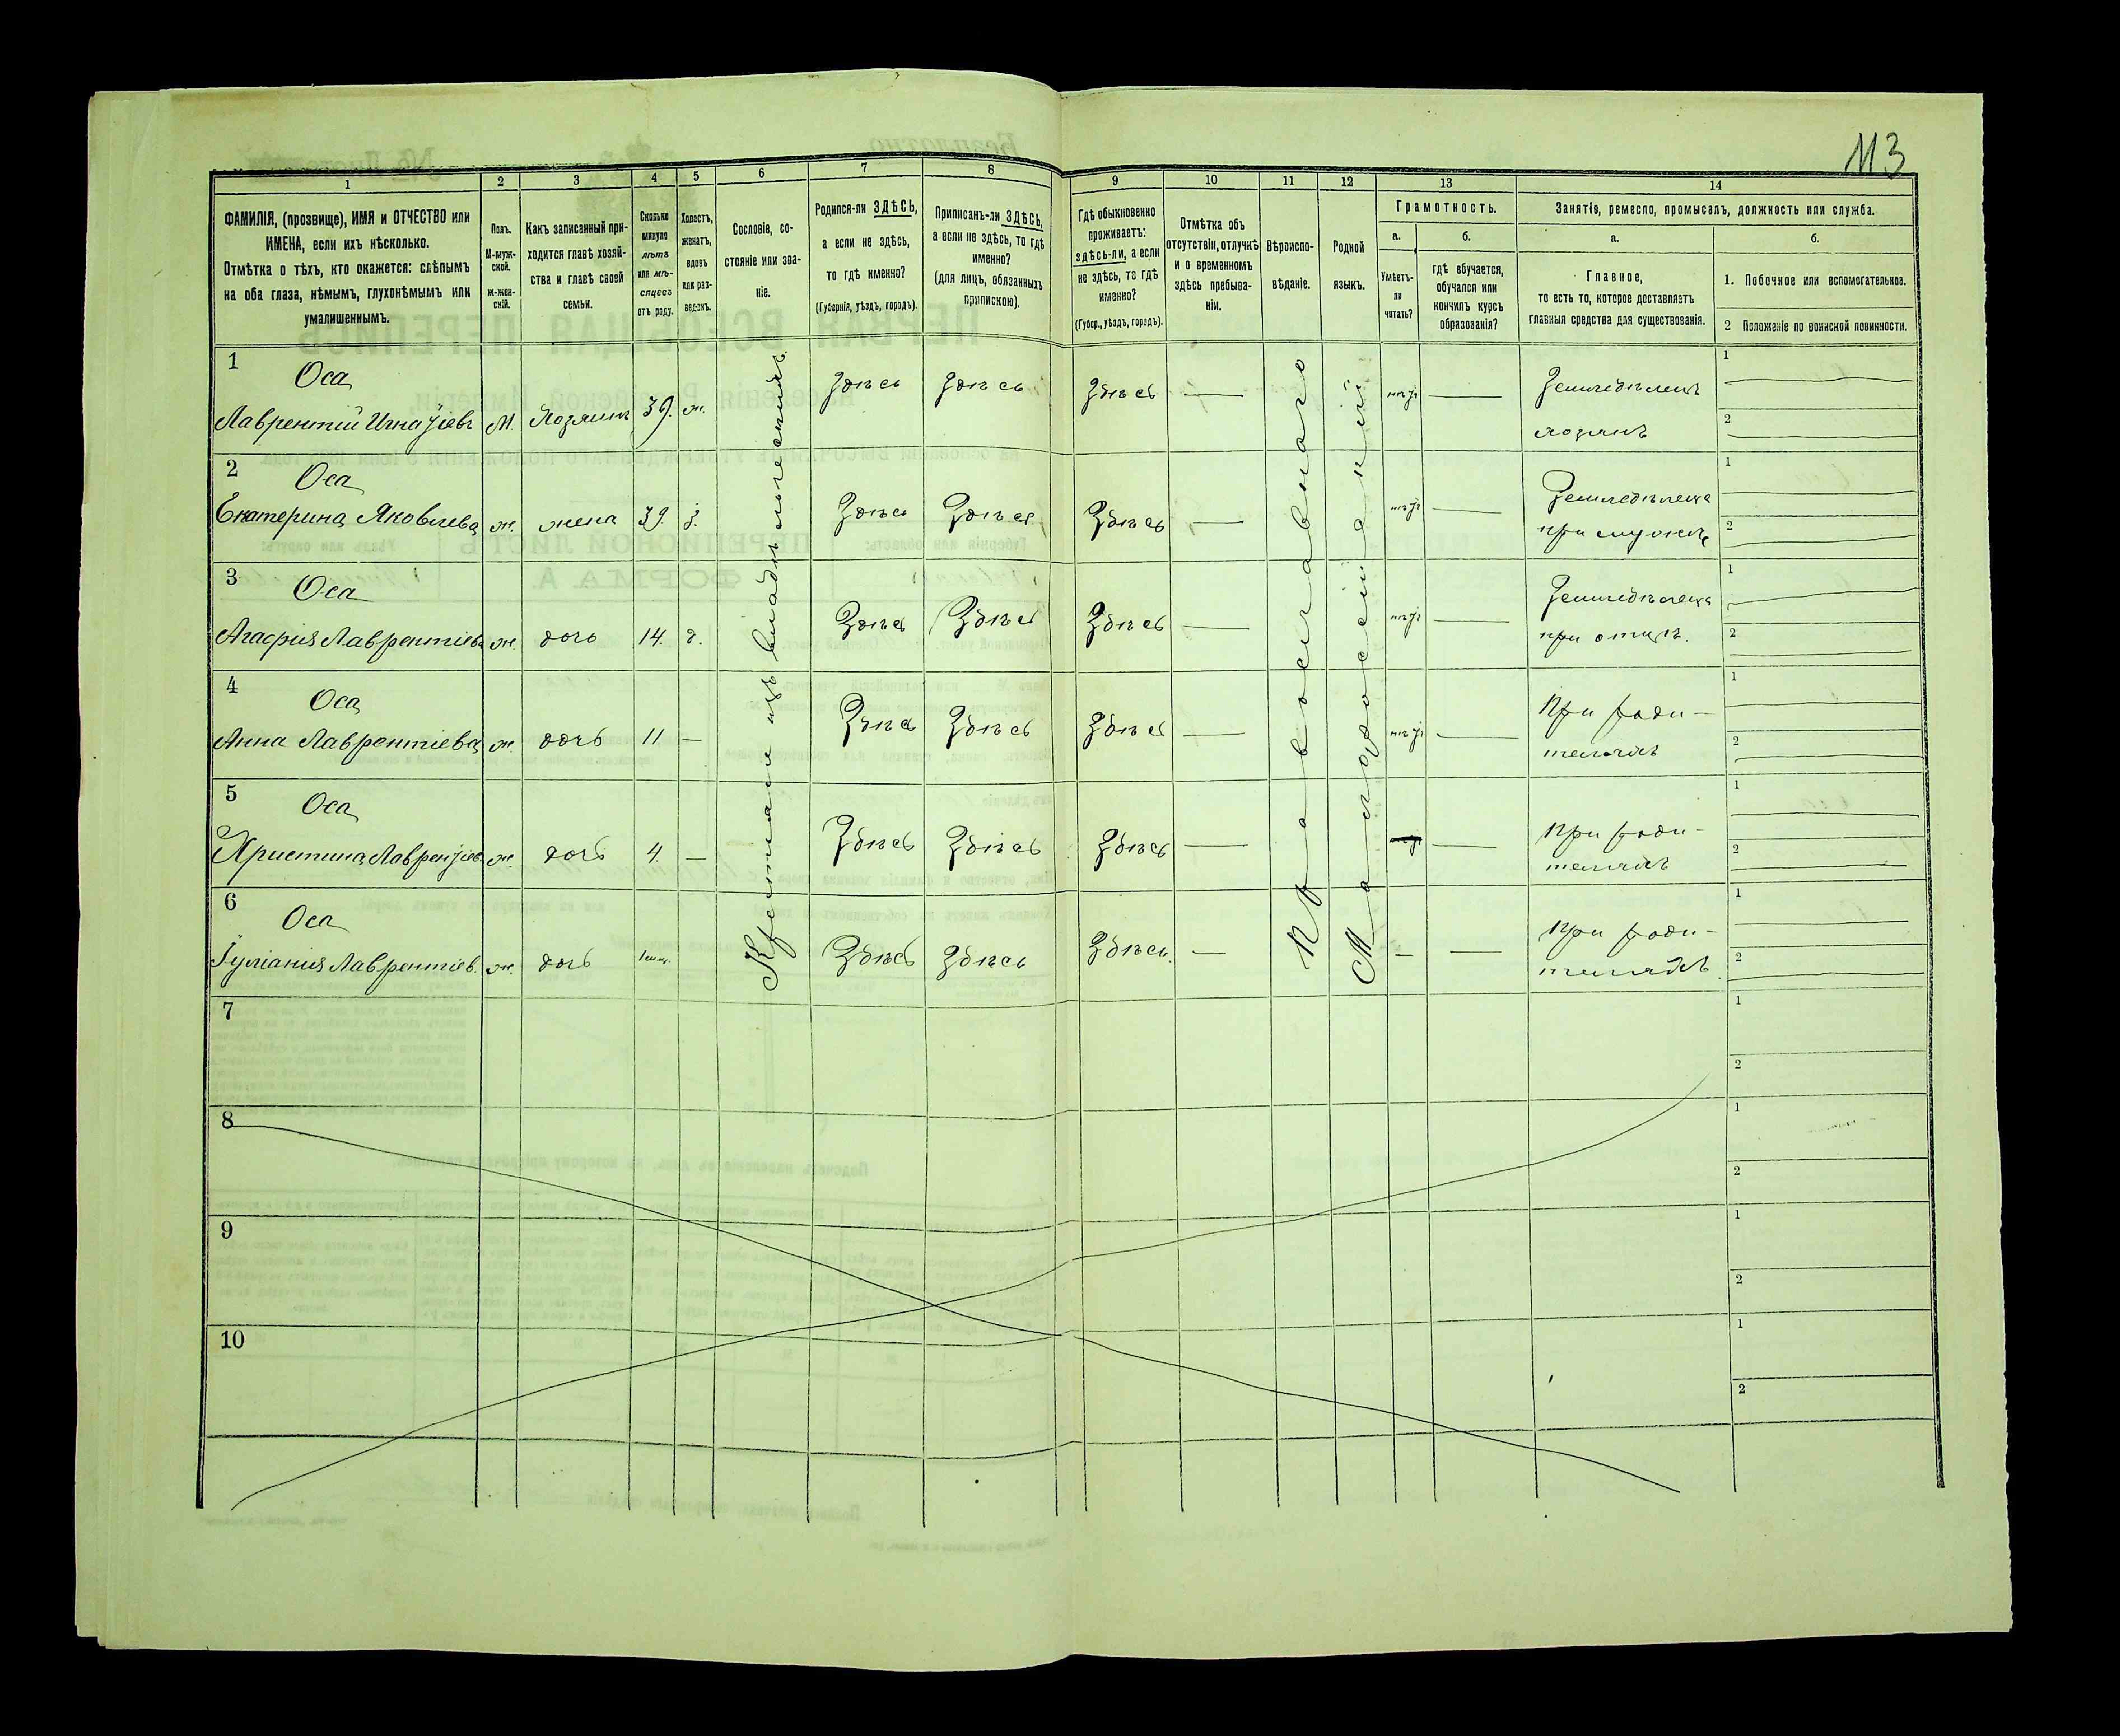 113
1 2 3 4 5 6 7 8 9 10 11 12 13 14
ФАМИЛІЯ, (прозвище), ИМЯ и ОТЧЕСТВО или
ИМЕНА, если ихъ нѣсколько.
Отмѣтка о тѣхъ, кто окажется: слѣпымъ
на оба глаза, нѣмымъ, глухонѣмымъ или
умалишеннымъ.
Полъ.
М-муж-
ской.
ж-жен-
скій.
Какъ записанный при-
ходится главѣ хозяй-
ства и главѣ своей
семьи.
Сколько
минуло
лѣтъ
или мѣ-
сяцевъ
отъ роду.
Холостъ,
женатъ,
вдовъ
или раз-
веденъ.
Сословіе, со-
стояніе или зва-
ніе.
Родился-ли ЗДѢСЬ,
а если не здѣсь,
то гдѣ именно?
(Губернія, уѣздъ, городъ).
Приписанъ-ли ЗДѢСЬ,
а если не здѣсь, то гдѣ
именно?
(для лицъ, обязанныхъ
припискою).
Гдѣ обыкновенно
проживаетъ:
здѣсь-ли, а если
не здѣсь, то гдѣ
именно?
(Губер., уѣздъ, городъ).
Отмѣтка объ
отсутствіи, отлучкѣ
и о временномъ
здѣсь пребыва-
ніи.
Вѣроиспо-
вѣданіе.
Родной
языкъ.
Грамотность.
а.
Умѣетъ-
ли
читать?
б.
Гдѣ обучается,
обучался или
кончилъ курсъ
образованія?
Занятіе, ремесло, промыселъ, должность или служба.
а.
Главное,
то есть то, которое доставляетъ
главныя средства для существованія.
б.
1. Побочное или вспомогательное.
2 Положеніе по воинской повинности.
Крестьяне изъ владѣльческихъ
Православнаго
Малороссійскій
1 Оса
Лаврентій Игнатіевъ м. Хозяинъ 39. ж. Здѣсь Здѣсь Здѣсь — нѣтъ — Земледѣлецъ
хозяинъ
1
2
2 Оса
Екатерина Яковлева ж. жена 39. з. Здѣсь Здѣсь Здѣсь — нѣтъ — Земледѣлеца
при мужѣ
1
2
3 Оса
Агафія Лаврентіева ж. дочь 14. д. Здѣсь Здѣсь Здѣсь — нѣтъ — Земледѣлеца
при отцѣ.
1
2
4 Оса
Анна Лаврентіева ж. дочь 11 — Здѣсь Здѣсь Здѣсь — нѣтъ — При роди-
теляхъ
1
2
5 Оса
Христина Лаврентіев. ж. дочь 4. — Здѣсь Здѣсь Здѣсь — — При роди-
теляхъ
1
2
6 Оса
Іуліанія Лаврентіев. ж. дочь Здѣсь Здѣсь Здѣсь. — — — При роди-
теляхъ
1
2
7
1
2
8
1
2
9
1
2
10
1
2